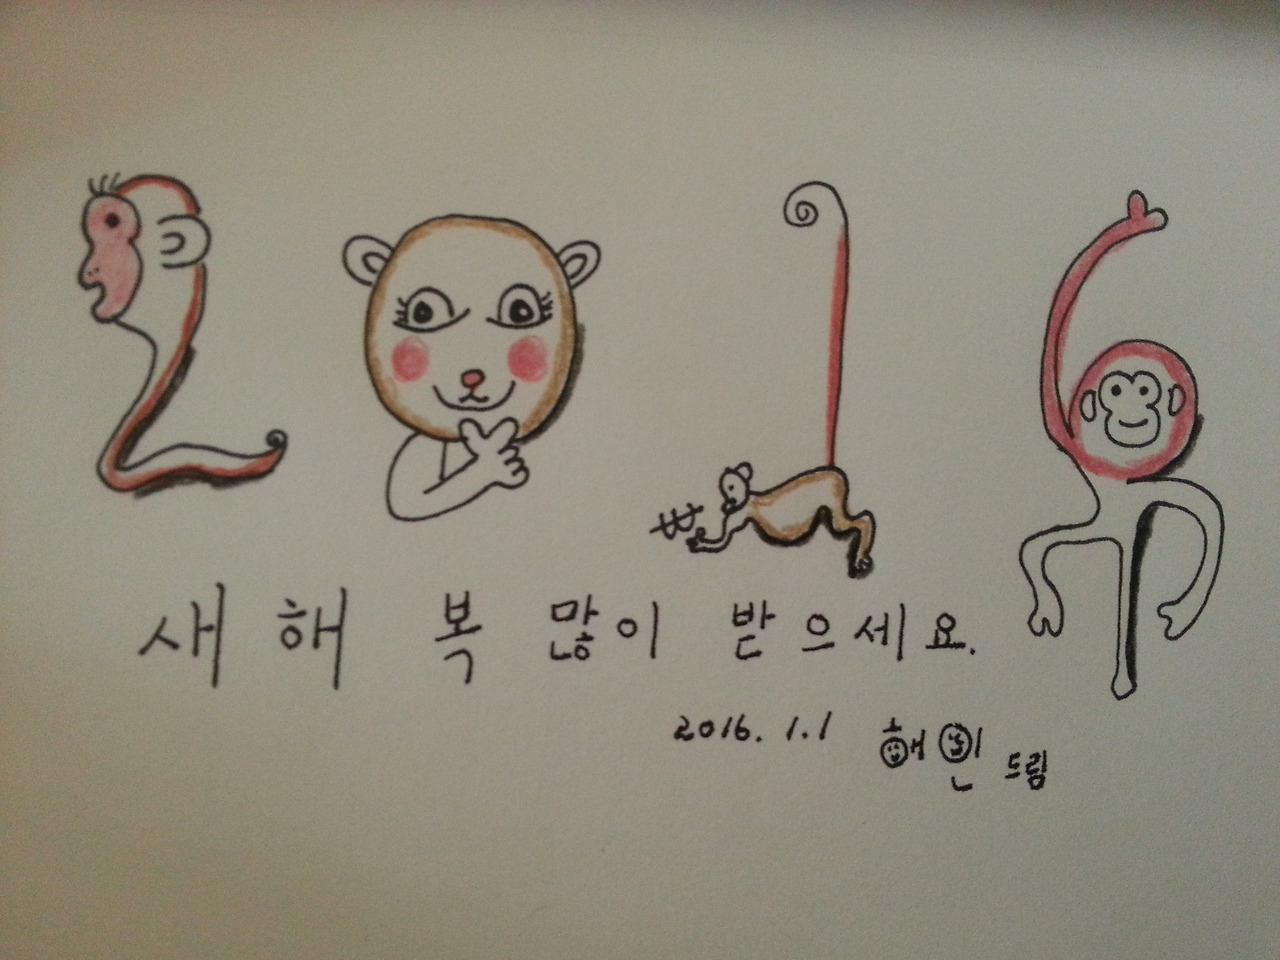 2016
₩
새해 복 많이 받으세요.
2016. 1.1 해인 드림